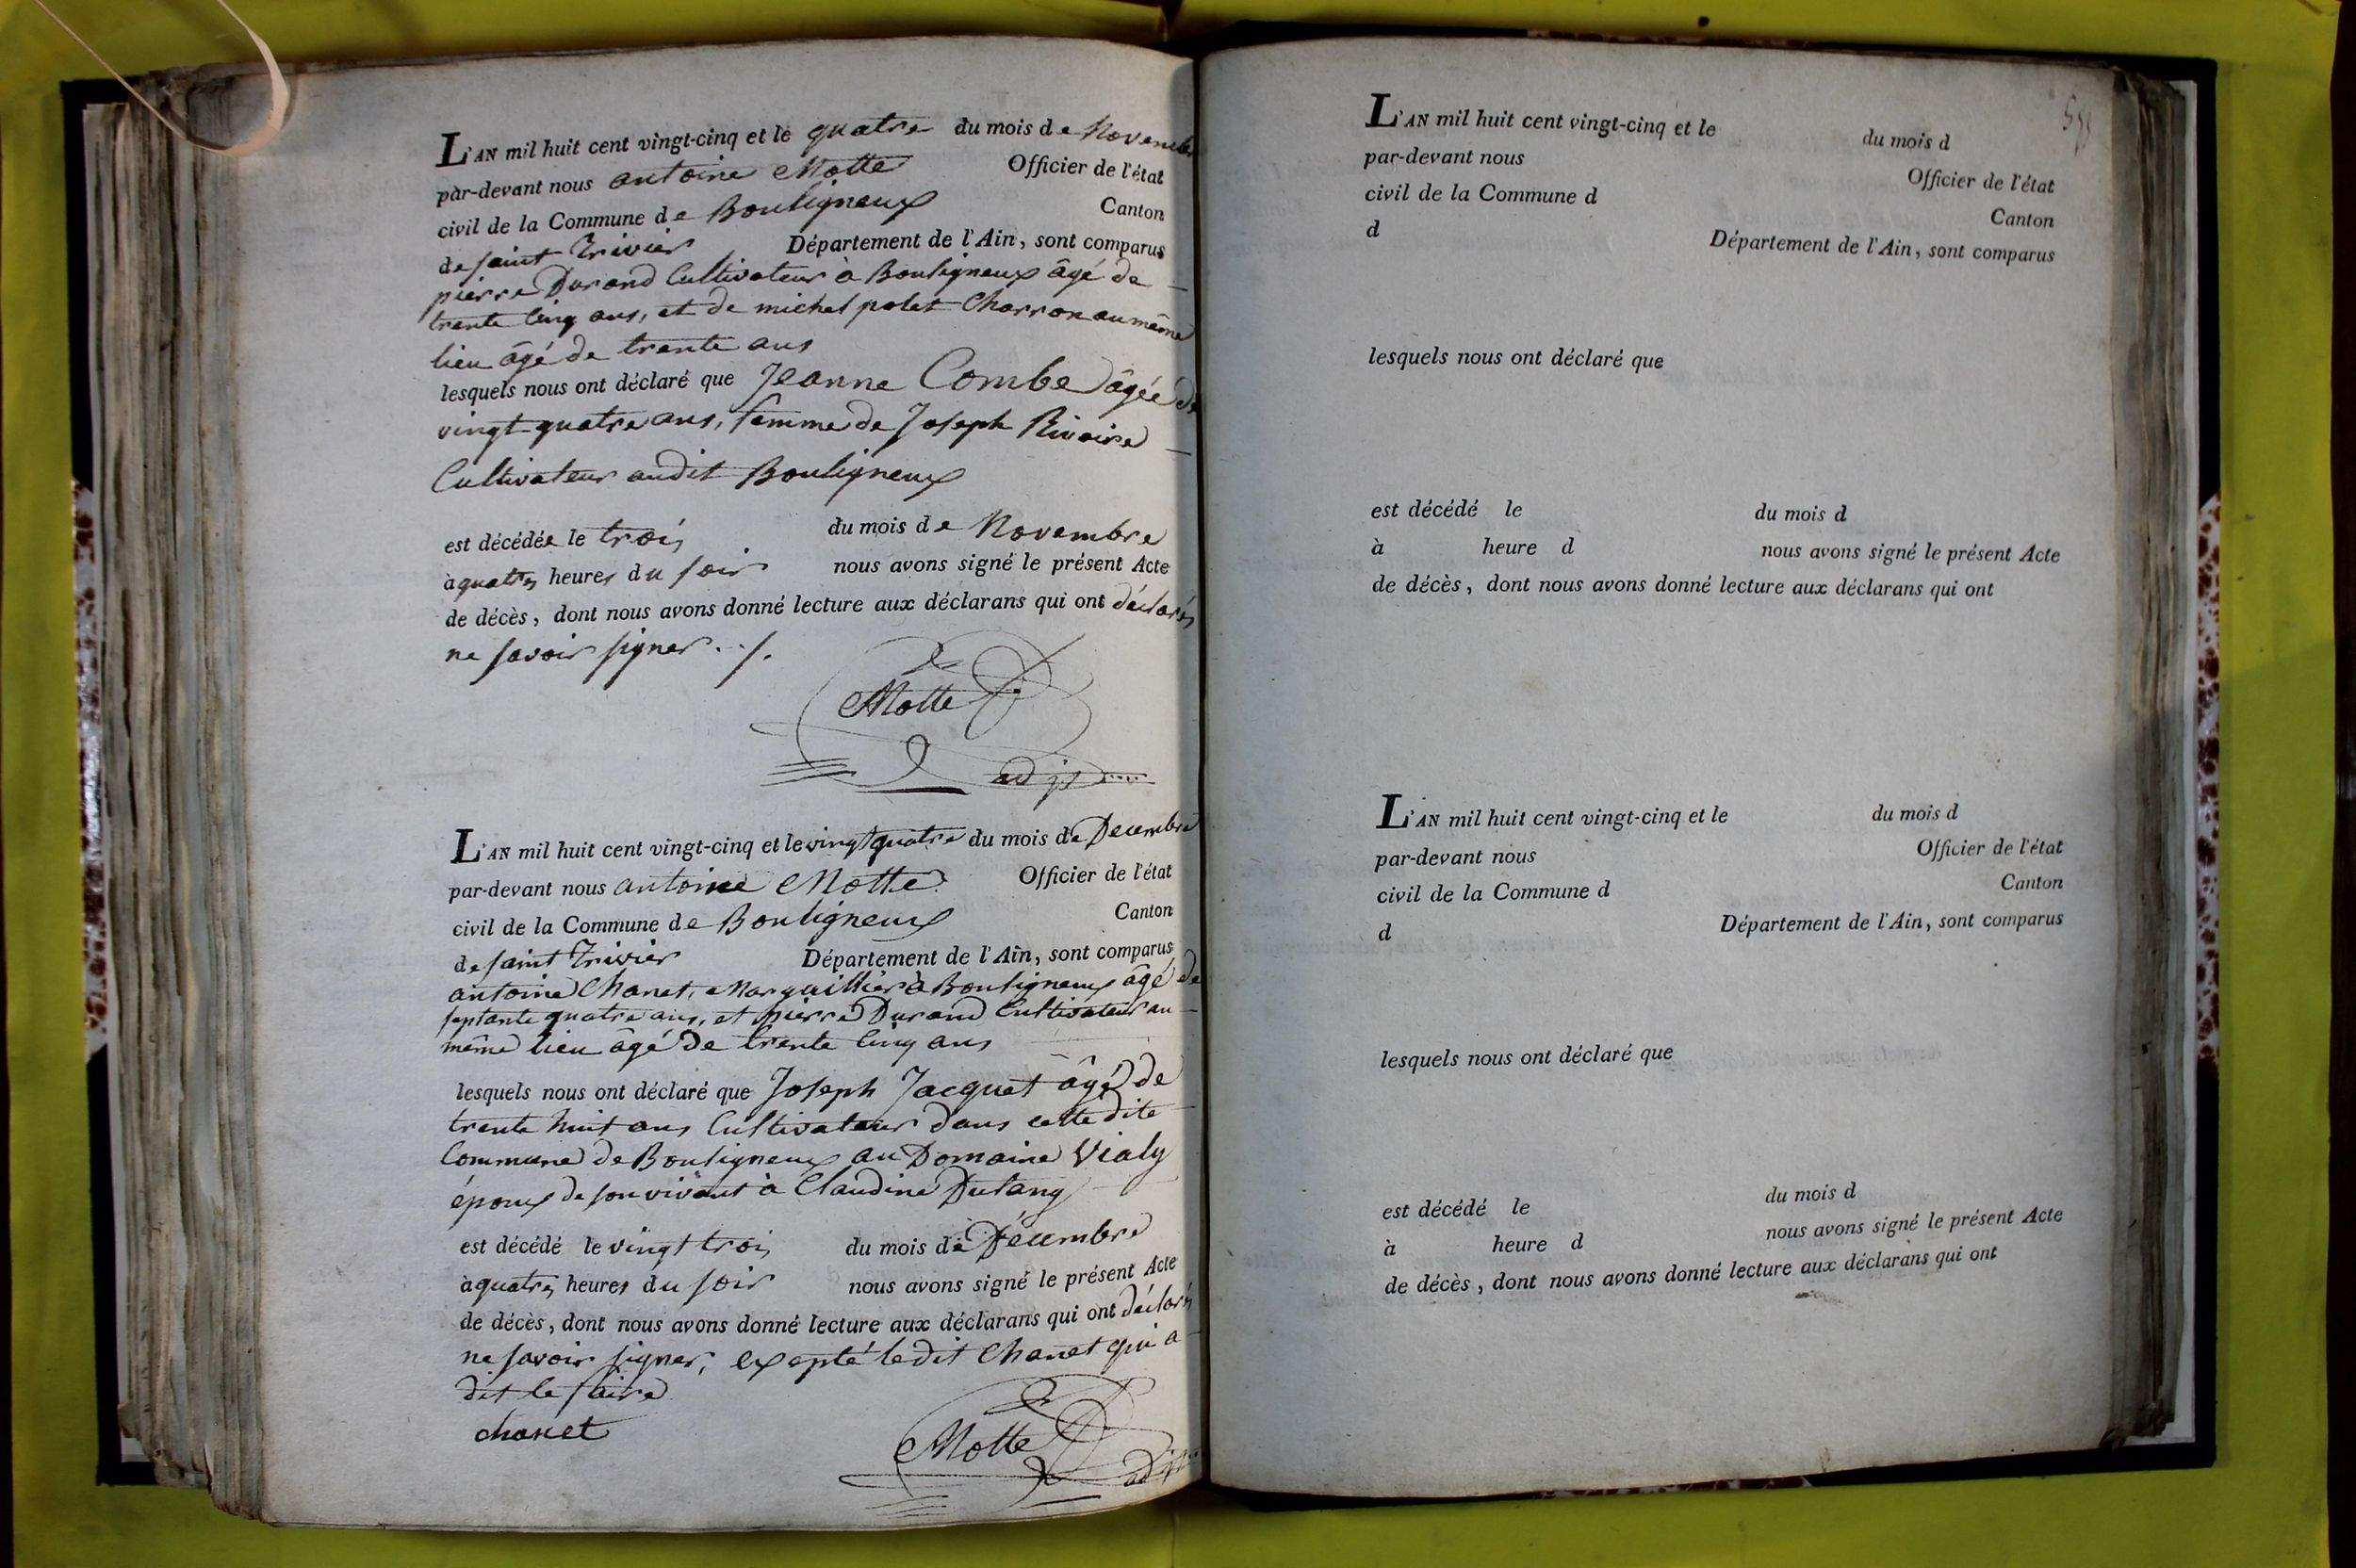 L'AN mil huit cent vingt-cinq et le quatre du mois de Novembre
par-devant nous antoine Motte Officier de l'état
civil de la Commune de Bouligneux Canton
de saint Trivier Département de l'Ain, sont comparus
pierre Durand Cultivateur à Bouligneux âgé de
trente Cinq ans, et de michel polet Charron au même
lieu âgé de trente ans
lesquels nous ont déclaré que Jeanne Combe âgée de
vingt-quatre ans, femme de Joseph Rivoire
Cultivateur audit Bouligneux
est décédée le trois du mois de Novembre
à quatres heures du soir nous avons signé le présent Acte
de décès, dont nous avons donné lecture aux déclarans qui ont déclarés
ne savoir signer ../.
Motte
adjt
L'AN mil huit cent vingt-cinq et le vingt quatre du mois de Decembre
par-devant nous antoine Motte Officier de l'état
civil de la Commune de Bouligneux Canton
de saint Trivier Département de l'Ain, sont comparus
antoine Chanet, Marguillier à Bouligneux âgé de
septante quatre ans, et pierre Durand Cultivateur au
même lieu âgé de trente Cinq ans
lesquels nous ont déclaré que Joseph Jacquet âgé de
trente huit ans Cultivateur dans cette dite
Commune de Bouligneux au Domaine Vialy
époux de son vivant à Claudine Dutang
est décédé le vingt trois du mois de Décembre
à quatres heures du soir nous avons signé le présent Acte
de décès, dont nous avons donné lecture aux déclarans qui ont déclarés
ne savoir signer, excepté ledit Chanet qui a
dit le faire
chanet
Motte
L'AN mil huit cent vingt-cinq et le du mois d
par-devant nous Officier de l'état
civil de la Commune d Canton
d Département de l'Ain, sont comparus
lesquels nous ont déclaré que
est décédé le du mois d
à heure d nous avons signé le présent Acte
de décès, dont nous avons donné lecture aux déclarans qui ont
L'AN mil huit cent vingt-cinq et le du mois d
par-devant nous Officier de l'état
civil de la Commune d Canton
d Département de l'Ain, sont comparus
lesquels nous ont déclaré que
est décédé le du mois d
à heure d nous avons signé le présent Acte
de décès, dont nous avons donné lecture aux déclarans qui ont